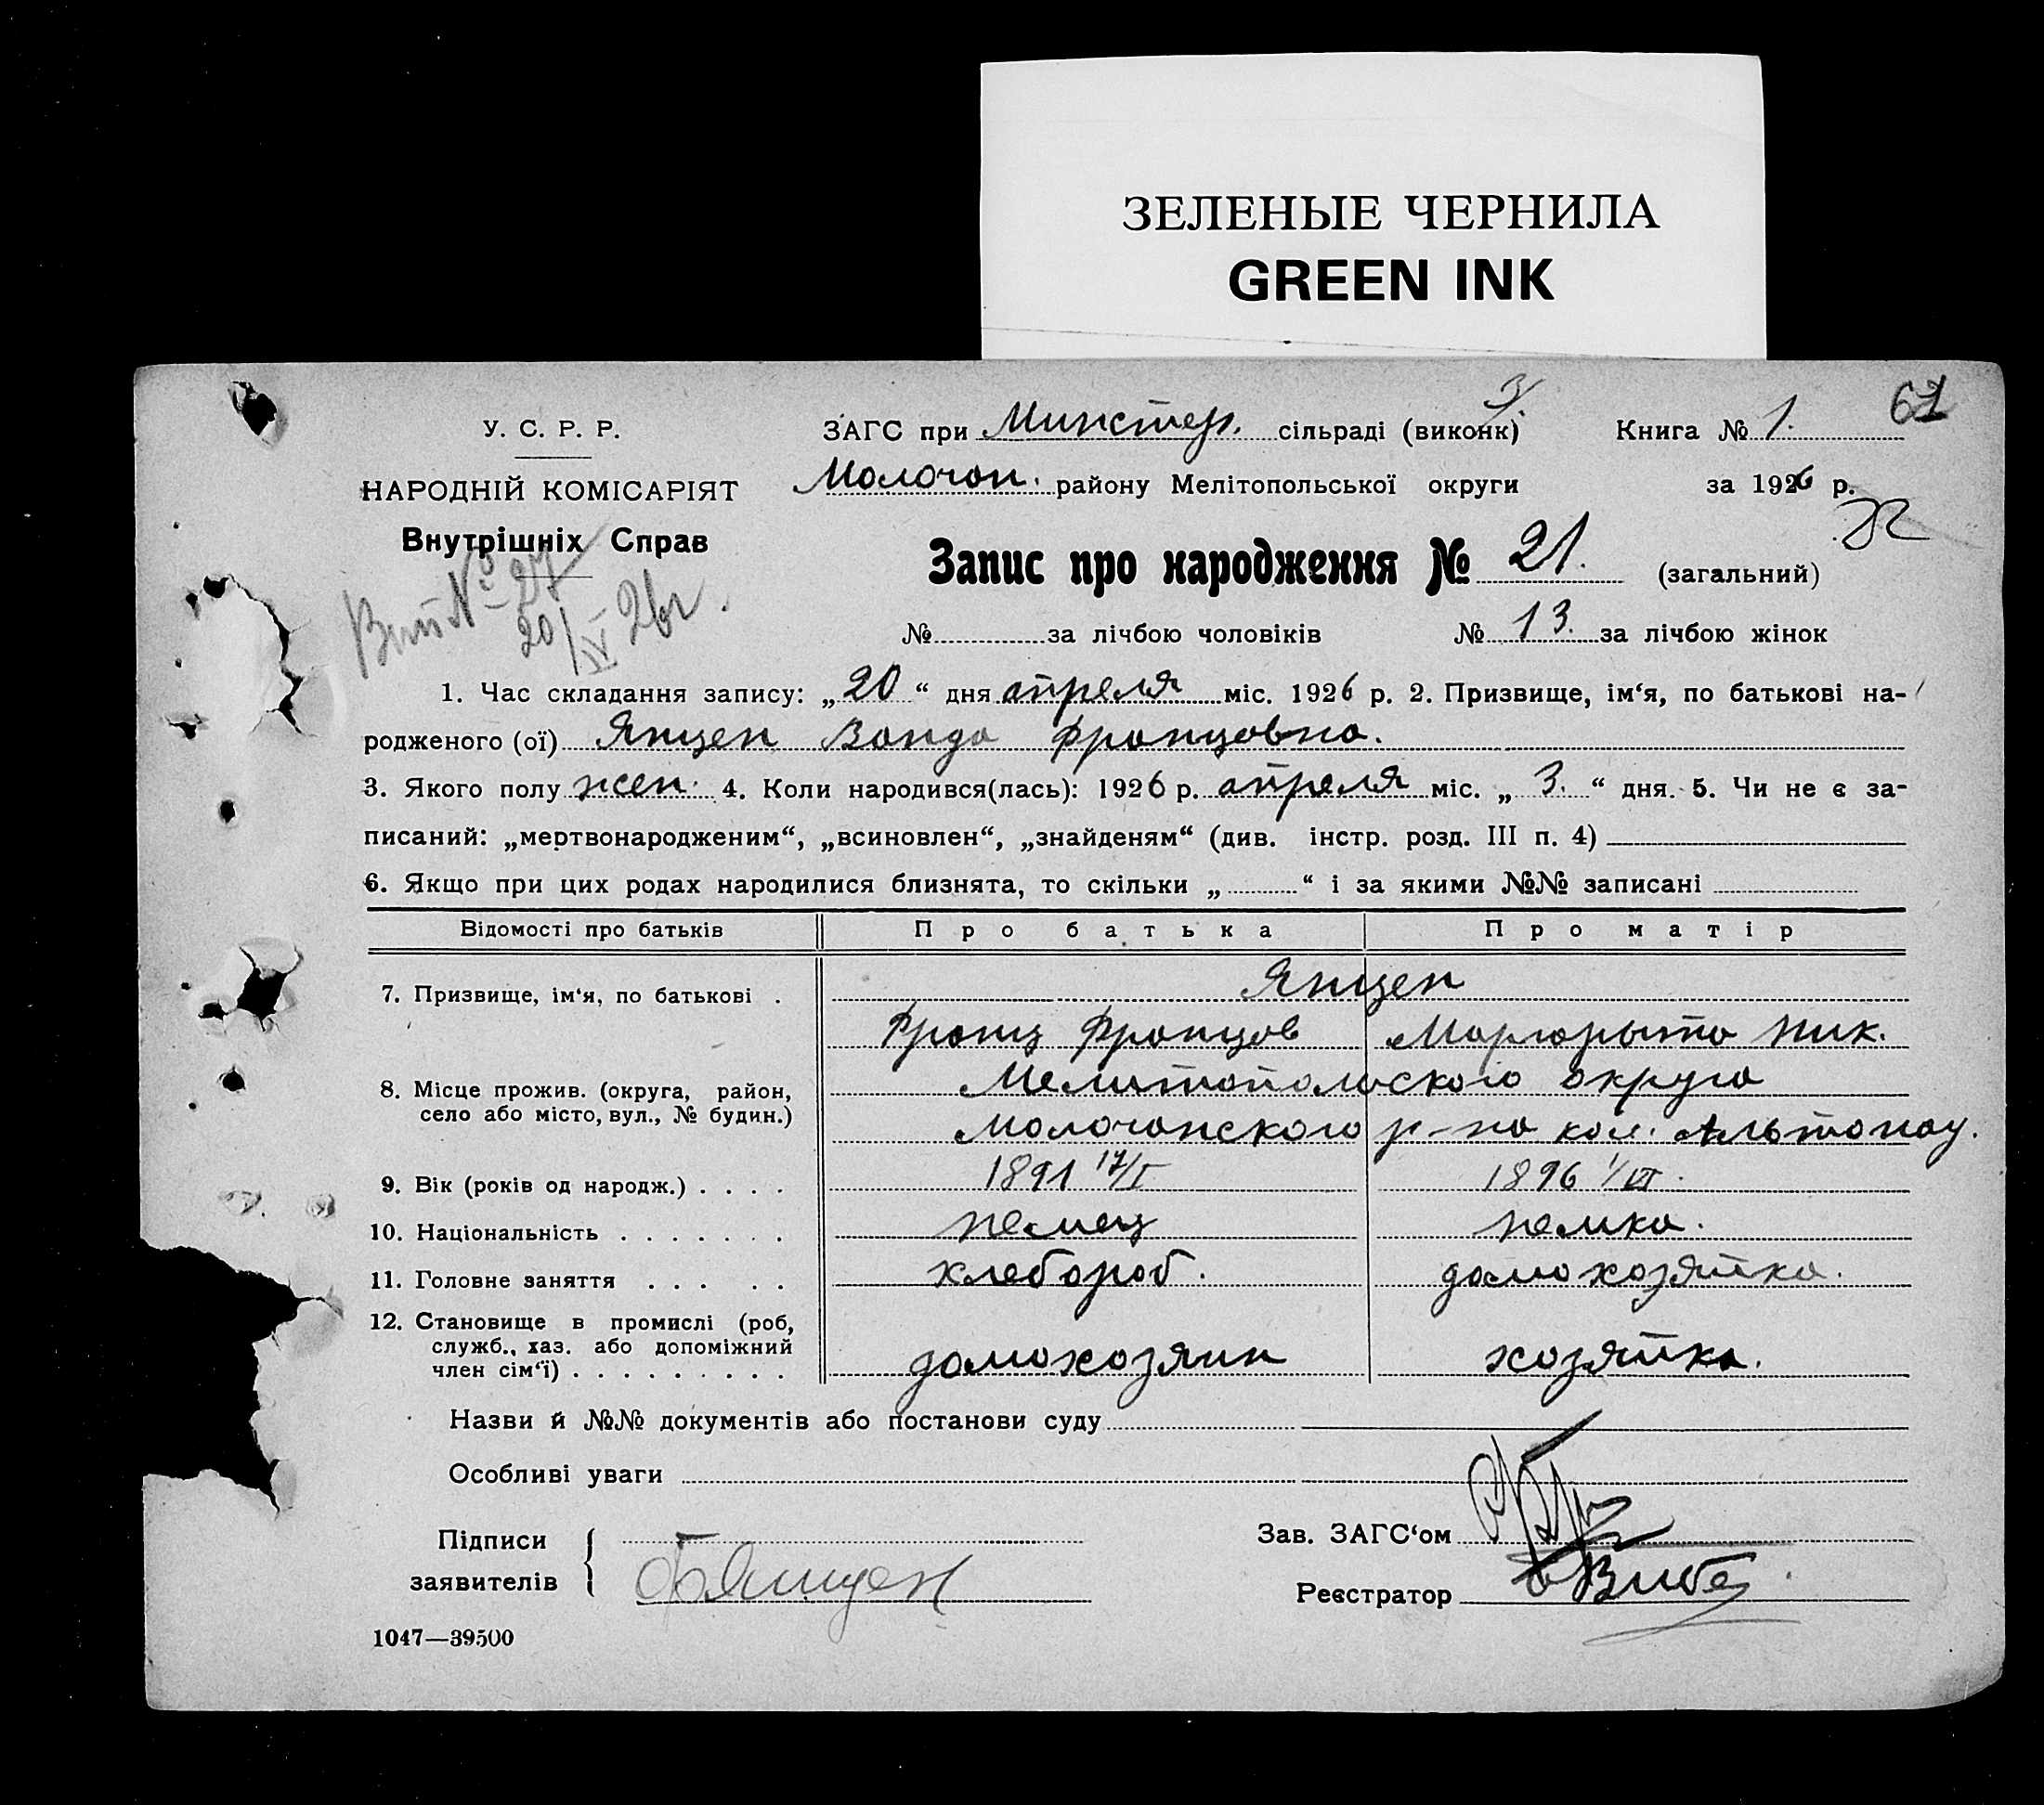 ЗЕЛЕНЫЕ ЧЕРНИЛА
GREEN INK
61
У. С. Р. Р.
ЗАГС при Минстер. сільраді (виконк) Книга № 1.
НАРОДНІЙ КОМІСАРІЯТ
Молочан. району Мелітопольської округи за 1926 р.
Внутрішніх Справ
Запис про народження № 21. (загальний)
Вип № 27
20/IV 26 г.
№ за лічбою чоловіків № 13. за лічбою жінок
1. Час складання запису: „20“ дня апреля міс. 1926 р. 2. Призвище, ім‘я, по батькові на-
родженого (ої) Янцен Ванда Францовна.
3. Якого полу жен. 4. Коли народився(лась): 1926 р. апреля міс. „3.“ дня. 5. Чи не є за-
писаний: „мертвонародженим“, „всиновлен“, „знайденям“ (див. інстр. розд. III п. 4)
6. Якщо при цих родах народилися близнята, то скільки „ “ і за якими №№ записані
Відомості про батьків Про батька Про матір
7. Призвище, ім‘я, по батькові . Янцен
Франц Францов Маргарыта Ник.
8. Місце прожив. (округа, район, Мелитопольского округа
село або місто, вул., № будин.) Молочанского р-на кол. Альтонау.
9. Вік (років од народж.) . . . . 1891 17/I 1896 1/VI.
10. Національність . . . . . . . немец немка.
11. Головне заняття . . . . . хлебороб. домохозяйка.
12. Становище в промислі (роб,
служб., хаз. або допоміжний
член сім‘ї) . . . . . . . . . домохозяин хозяйка.
Назви й №№ документів або постанови суду
Особливі уваги
Підписи Зав. ЗАГС‘ом
заявителів Ф Янцен Реєстратор Вибе
1047—39500